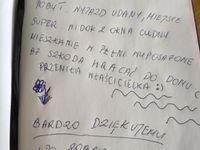 POBYT, WYJAZD UDANY, MIEJSCE
SUPER WIDOK Z OKNA CUDNY
MIESZKANIE W PEŁNI WYPOSAŻONE
AŻ SZKODA WRACAĆ DO DOMU (
PRZEMIŁA WŁAŚCICIELKA :)
BARDZO DZIĘKUJEMY